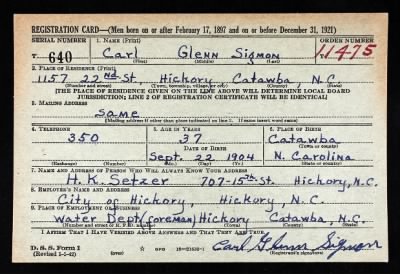 REGISTRATION CARD—(Men born on or after February 17, 1897 and on or before December 31, 1921)
SERIAL NUMBER 1. NAME (Print) ORDER NUMBER
T 640 Carl Glenn Sigmon 11475
(First) (Middle) (Last)
2. PLACE OF RESIDENCE (Print)
1157 22nd St, Hickory Catawba, N.C.
(Number and street) (Town, township, village, or city) (County) (State)
[THE PLACE OF RESIDENCE GIVEN ON THE LINE ABOVE WILL DETERMINE LOCAL BOARD
JURISDICTION; LINE 2 OF REGISTRATION CERTIFICATE WILL BE IDENTICAL]
3. MAILING ADDRESS
Same
[Mailing address if other than place indicated on line 2. If same insert word same]
4. TELEPHONE 5. AGE IN YEARS 6. PLACE OF BIRTH
350 37 Catawba
DATE OF BIRTH (Town or county)
Sept. 22 1904 N. Carolina
(Exchange) (Number) (Mo.) (Day) (Yr.) (State or country)
7. NAME AND ADDRESS OF PERSON WHO WILL ALWAYS KNOW YOUR ADDRESS
H. K. Setzer 707-15th St. Hickory, N.C.
8. EMPLOYER'S NAME AND ADDRESS
City of Hickory, Hickory, N.C.
9. PLACE OF EMPLOYMENT OR BUSINESS
Water Dept (foreman) Hickory Catawba, N.C.
(Number and street or R. F. D. number) (Town) (County) (State)
I AFFIRM THAT I HAVE VERIFIED ABOVE ANSWERS AND THAT THEY ARE TRUE.
D. S. S. Form 1
(Revised 1-1-42) GPO 16—21630-1 Carl Glenn Sigmon